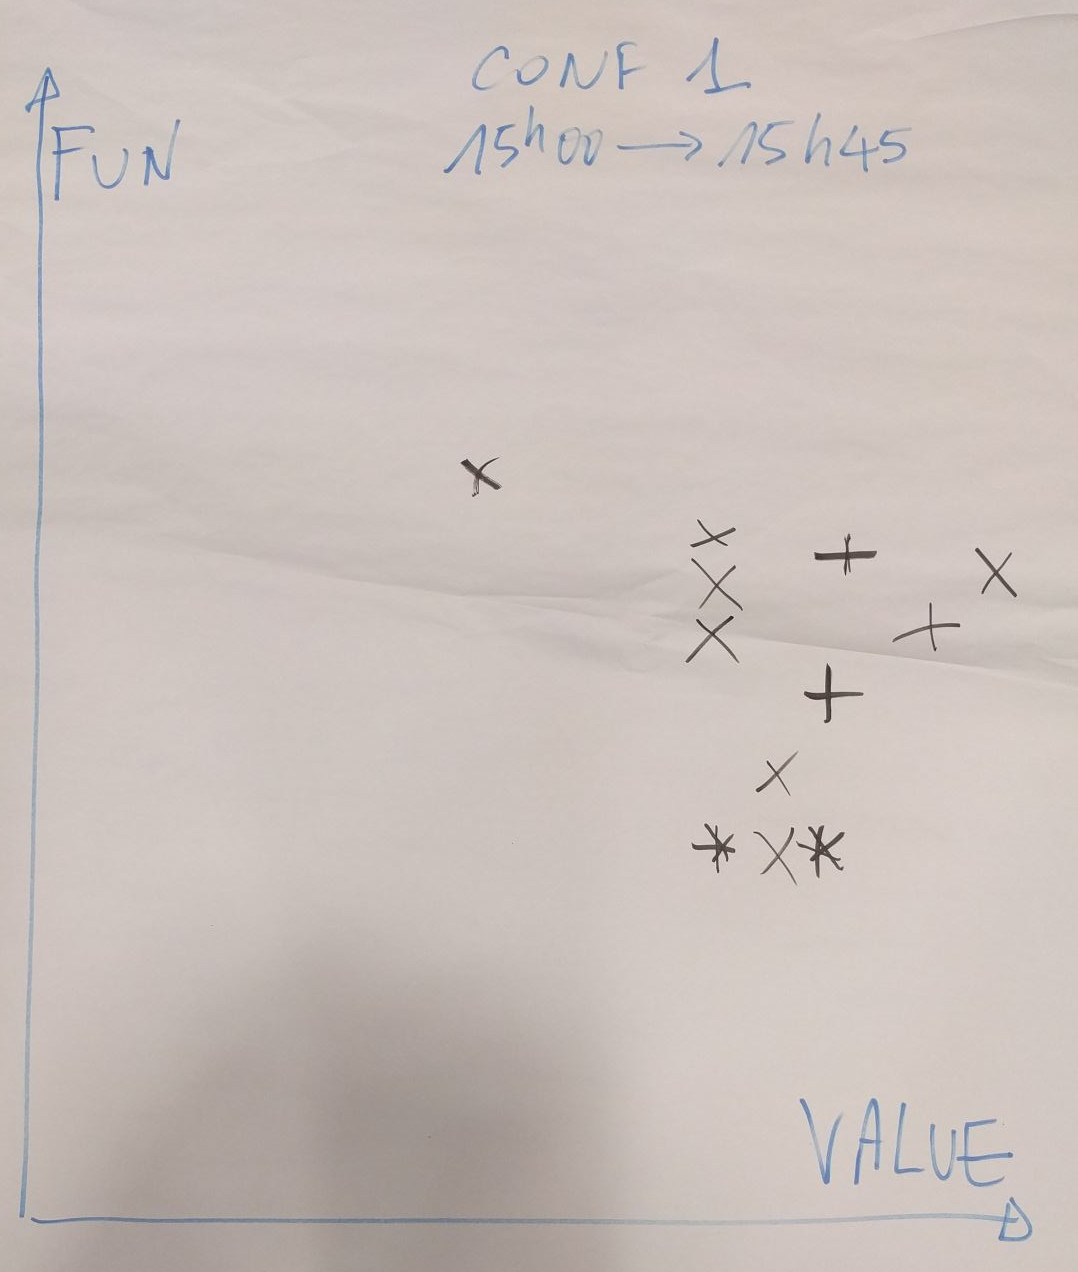 CONF 1
15h00 → 15h45
FUN
VALUE